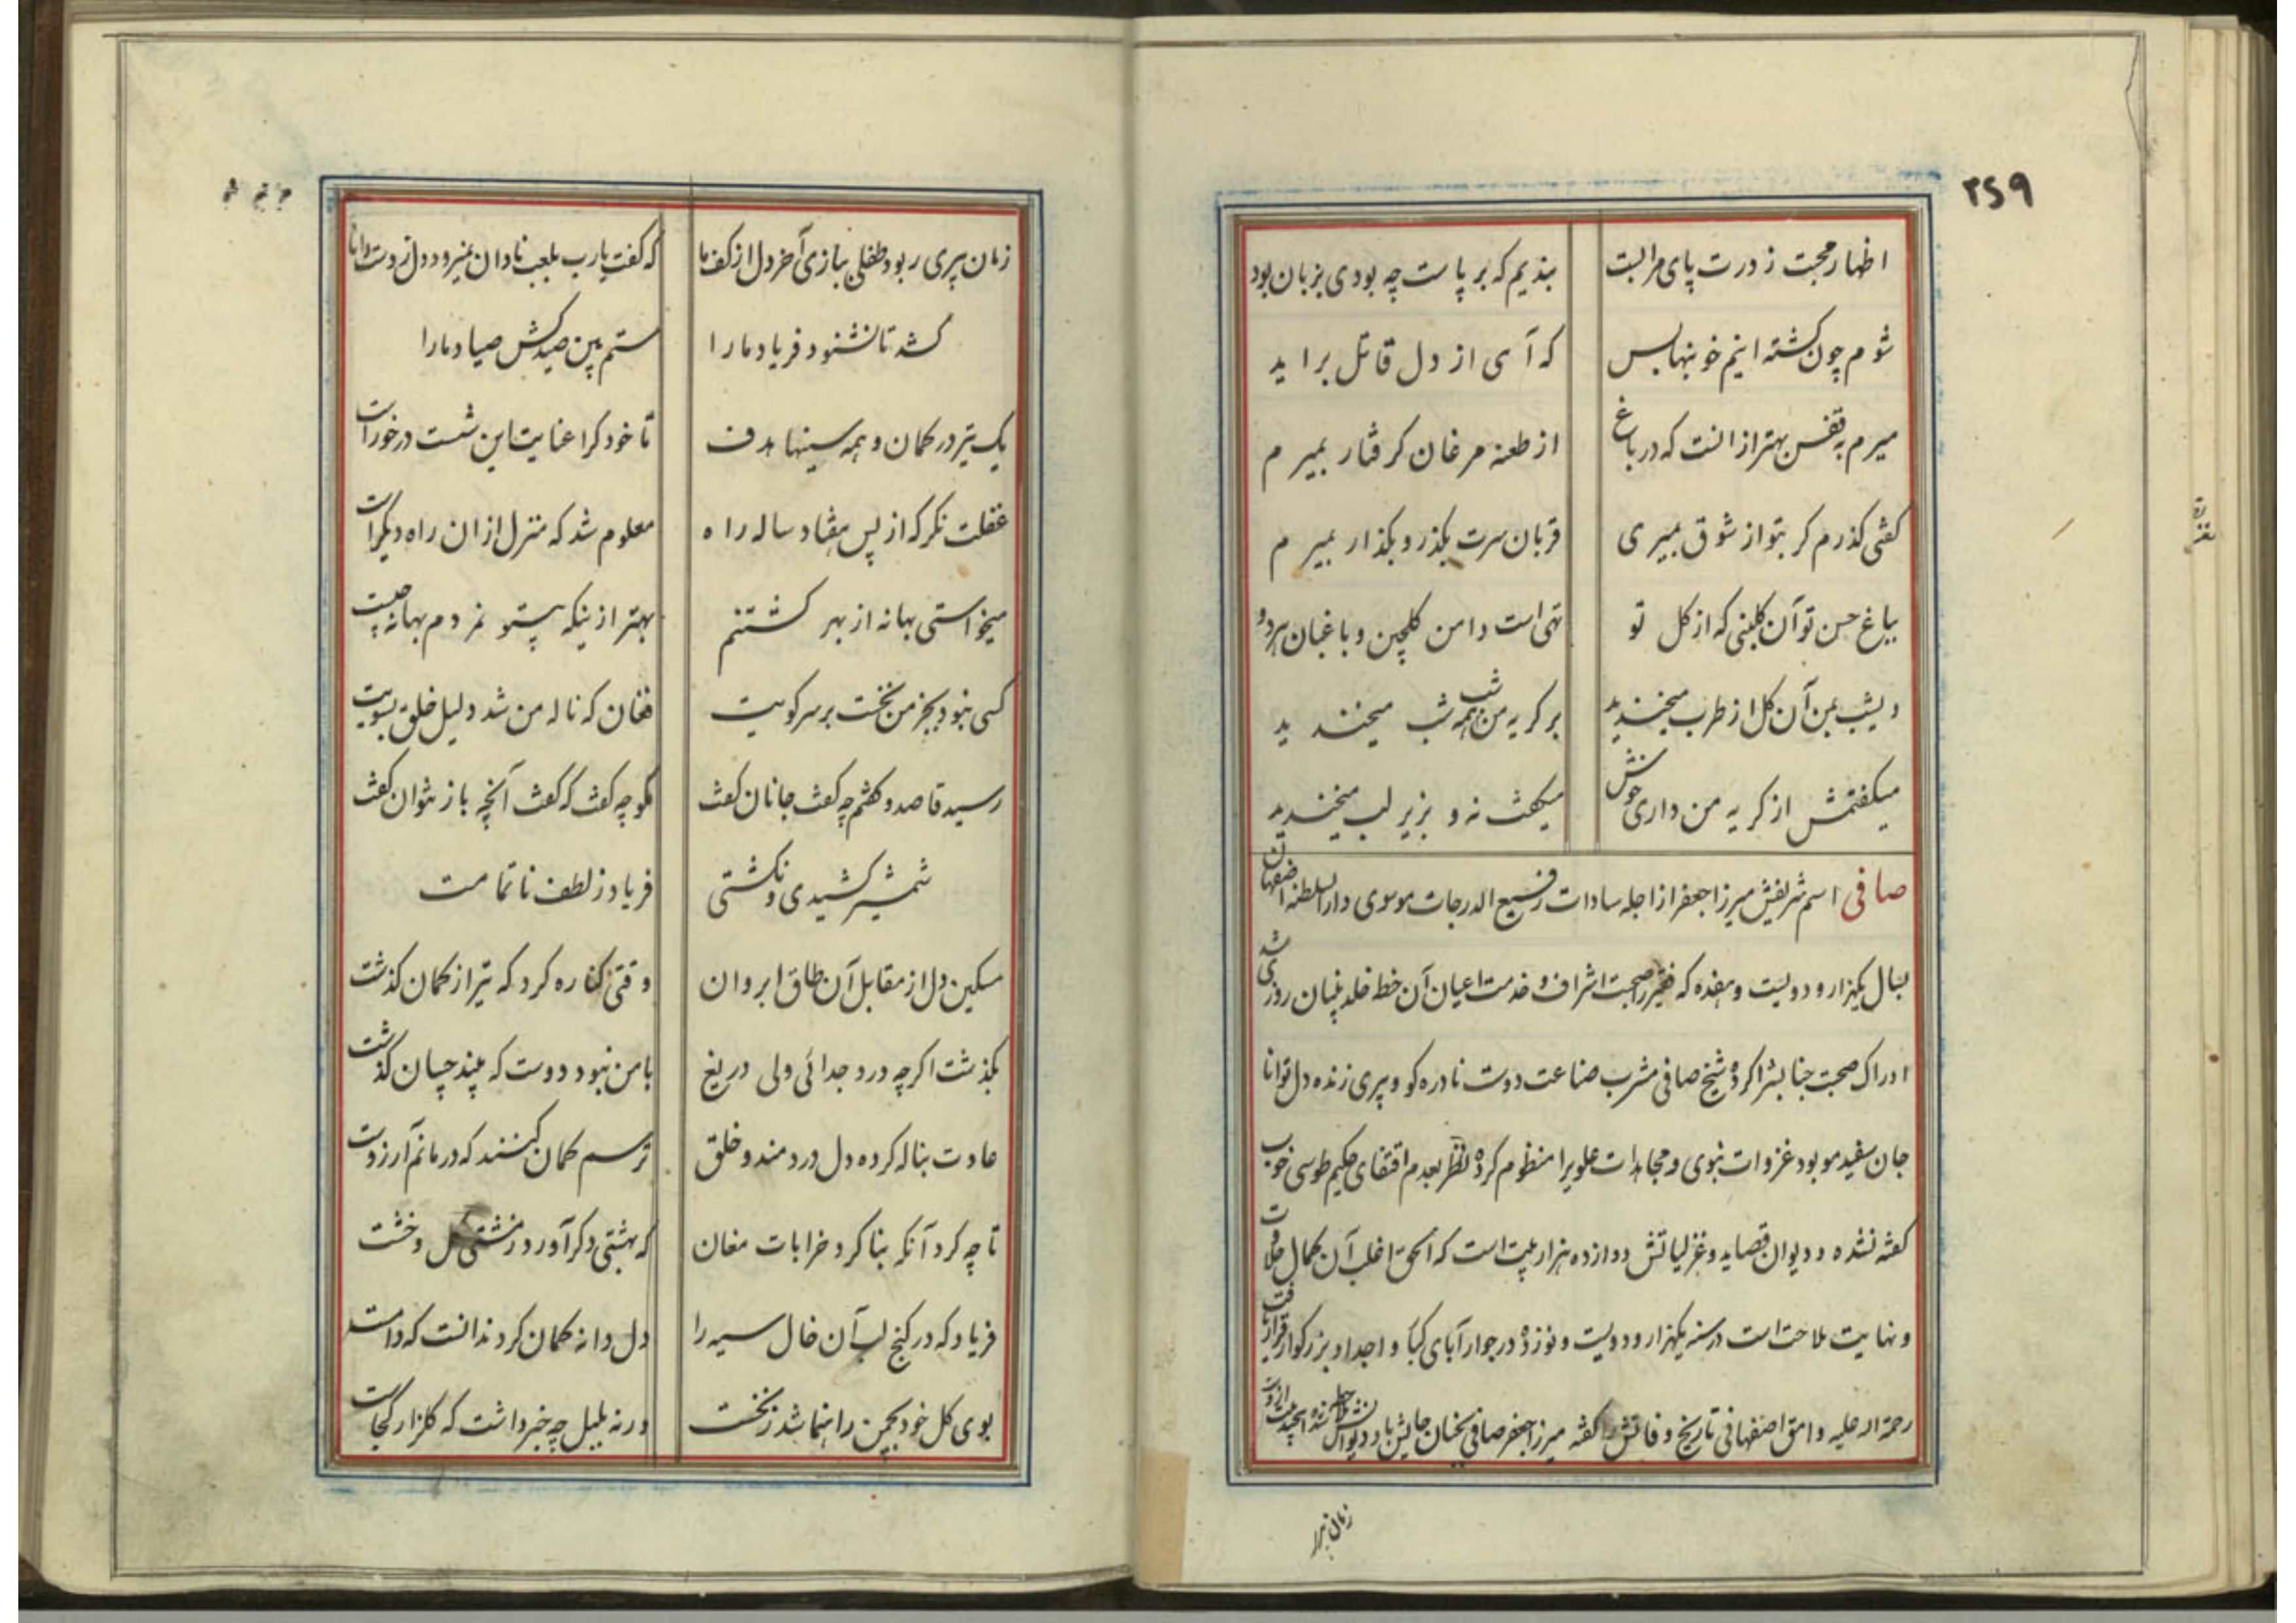 ۲۶۹
اظهار محبت ز درت پای مرا بست بندیم که بر پاست چه بودی بزبان بود
شوم چون کشته اینم خونبها بس که آهی از دل قاتل براید
میرم به قفس بهتر از انست که در باغ از طعنه مرغان کرفتار بمیرم
کفتی کذرم کر بتو از شوق بمیری قربان سرت بکذر و بکذار بمیرم
بباغ حسن تو آن کلبنی که از کل تو تهی است دامن کلچین و باغبان هر دو
دیشب بمن آن کل از طرب میخندید بر کریه من همه شب میخندید
میکفتمش از کریه من داری خوش میکفت نه و بزیر لب میخندید
صافی اسم شریفش میرزا جعفر از اجله سادات رفیع الدرجات موسوی دارالسلطنه اصفهان
بسال یکهزار و دویست و هفده که فقیر را صحبت اشراف و خدمت اعیان آن خطه خلد بنیان روزی شد
ادراک صحبت جنابش را کرده شیخ صافی مشرب صناعت دوست نادره کو و پیری زنده دل توانا
جان سفید مو بود غزوات نبوی و مجاهدات علویرا منظوم کرده لظر بعدم اقتفای حکیم طوسی خوب
کفته نشده و دیوان قصاید و غزلیاتش دوازده هزار بیت است که الحق اغلب آن کمال حلاوت
و نهایت ملاحت است در سنه یکهزار و دویست و نوزده در جوار آبای کبار و اجداد بزرکوار قرار یافت
رحمة اله علیه و امق اصفهانی تاریخ وفاتش را کفته میرزا جعفر صافی بجنان جایش باد دیوانش
زمان پیری ربود طفلی ببازی آخر دل از کف ما که کفت یارب بلعب نادان نمیرود دل ز دست دانا
کشد تا نشنود فریاد ما را ستم بین صید کش صیاد ما را
یک تیر در کمان و همه سینها هدف تا خود کرا عنایت این شست در خورا ست
غفلت نکر که از پس هفتاد ساله راه معلوم شد که منزل از ان راه دیکر است
میخواستی بهانه از بهر کشتنم بهتر ازینکه بیتو نمردم بهانه چیست
کسی نبود بجز من نخست بر سر کویت فغان که ناله من شد دلیل خلق بسویت
رسید قاصد و کفتم چه کفت جانان کفت مکو چه کفت که کفت آنچه باز نتوان کفت
شمشیر کشیدی و نکشتی فریاد ز لطف ناتمامت
مسکین دل از مقابل آن طاق ابروان وقتی کناره کرد که تیر از کمان کذشت
بکذشت اکرچه درد جدائی ولی دریغ با من نبود دوست که بیند چسان کذشت
عادت بناله کرده دل دردمند و خلق ترسم کمان کنند که درمانم آرزوست
تا چه کرد آنکه بنا کرد خرابات مغان که بهشتی دکر آورد ز مشتی کل و خشت
فریاد که در کنج لب آن خال سیه را دل دانه کمان کرد ندانست که دامست
بوی کل خود بچمن راهنما شد ز نخست ورنه بلبل چه خبر داشت که کلزار کجاست